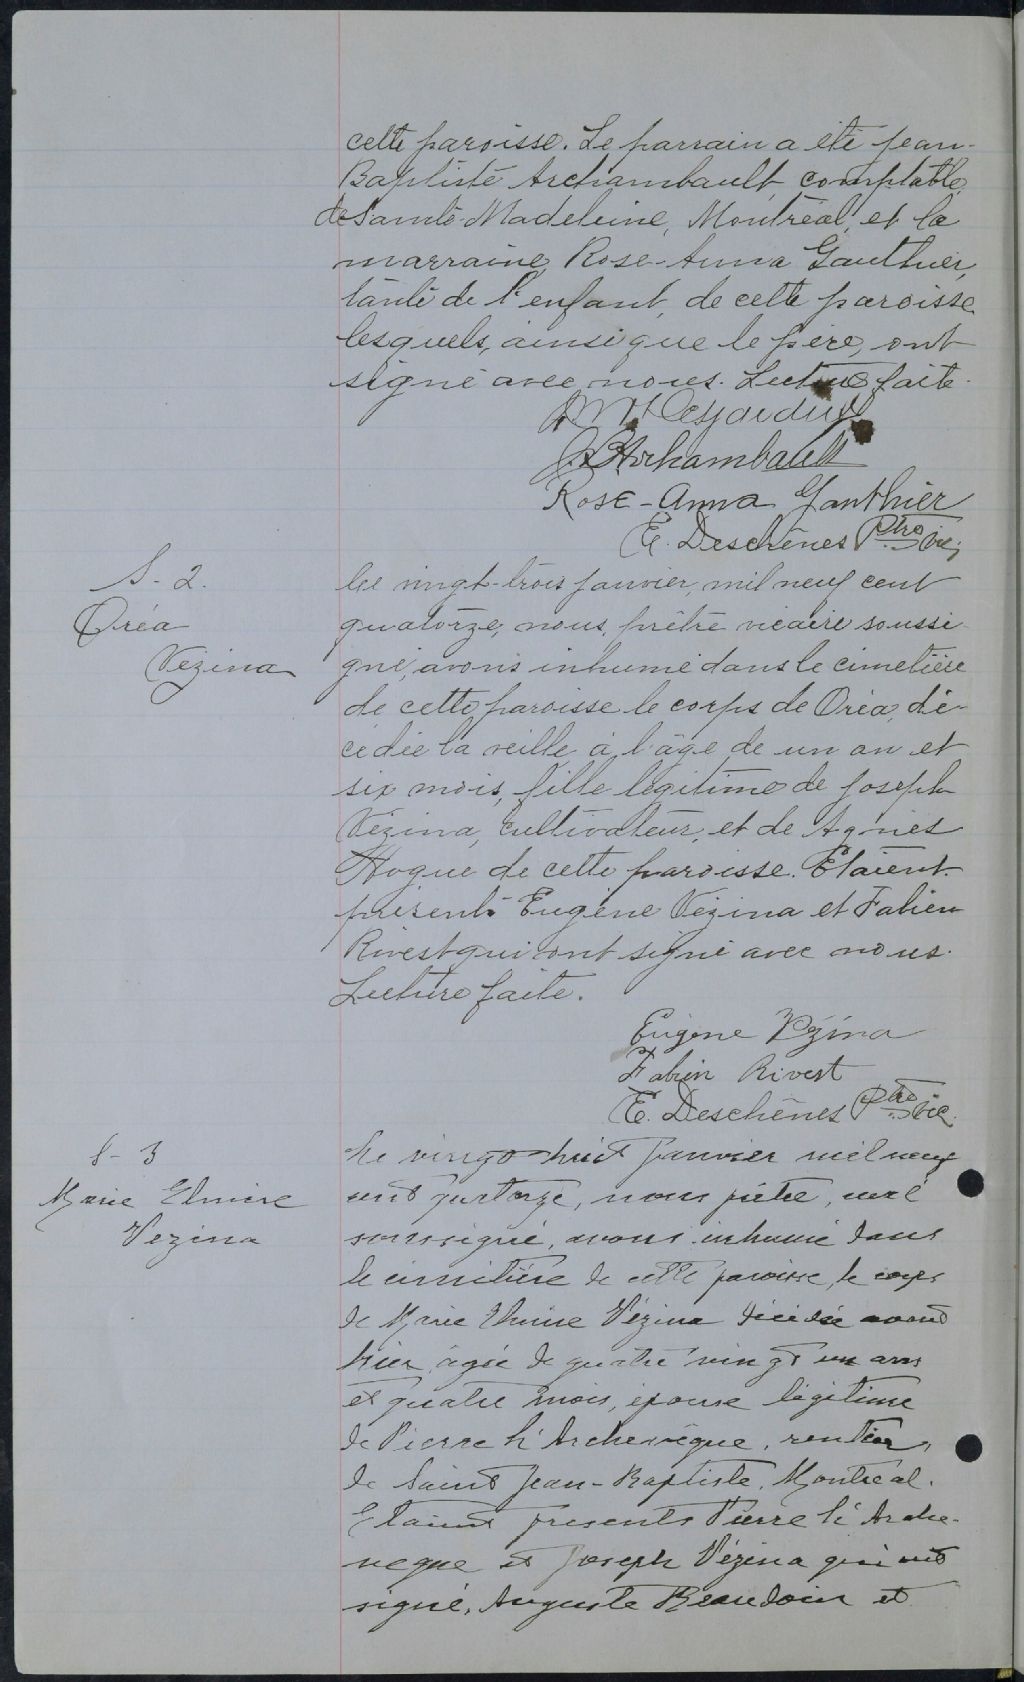 cette paroisse. Le parrain a été Jean-
Baptiste Archambault, comptable,
de Sainte-Madeleine, Montréal, et la
marraine, Rose-Anna Gauthier,
tante de l'enfant, de cette paroisse
lesquels, ainsi que le père, ont
signé avec nous. Lecture faite.
Desjardins
J B Archambault
Rose-Anna Gauthier
E. Deschênes Ptre vic.
S-2.
Oréa
Vézina
Le vingt-trois janvier, mil neuf cent
quatorze, nous, prêtre vicaire soussi-
gné, avons inhumé dans le cimetière
de cette paroisse le corps de Oréa, dé-
cédée la veille à l'âge de un an et
six mois, fille légitime de Joseph
Vézina, cultivateur, et de Agnès
Hogue de cette paroisse. Etaient
présents Eugène Vézina et Fabien
Rivest qui ont signé avec nous.
Lecture faite.
Eugène Vézina
Fabien Rivest
E. Deschênes Ptre vic.
S-3
Marie Elmire
Vezina
Le vingt-huit Janvier mil neuf
cent quatorze, nous prêtre, curé
soussigné, avons inhumé dans
le cimetière de cette paroisse, le corps
de Marie Elmire Vézina décédée avant
hier, agée de quatre vingt un ans
et quatre mois, épouse légitime
de Pierre L'Archevêque, rentier,
de Saint Jean-Baptiste, Montréal.
Etaient presents Pierre L'Arche-
veque et Joseph Vézina qui ont
signé, Auguste Beaudoin et